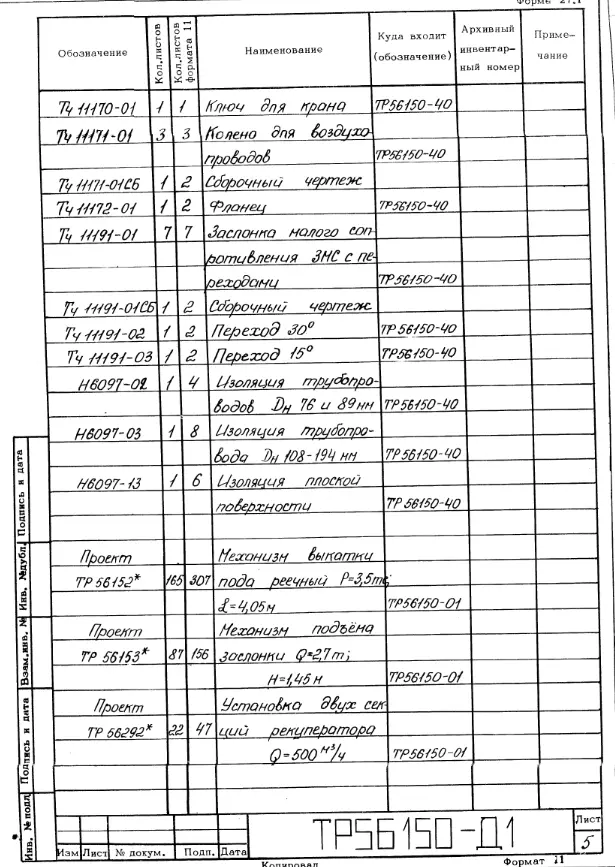 Форме 27.1
Обозначение Кол.листов Кол.листов формата 11 Наименование Куда входит (обозначение) Архивный инвентар- ный номер Приме- чание
Тч 11170-01 1 1 Ключ для крана ТР56150-40
Тч 11171-01 3 3 Колено для воздухо-
проводов ТР56150-40
Тч 11171-01СБ 1 2 Сборочный чертеж
Тч 11172-01 1 2 Фланец ТР56150-40
Тч 11191-01 7 7 Заслонка малого соп-
ротивления ЗМС с пе-
реходами ТР56150-40
Тч 11191-01СБ 1 2 Сборочный чертеж
Тч 11191-02 1 2 Переход 30° ТР56150-40
Тч 11191-03 1 2 Переход 15° ТР56150-40
Н6097-02 1 4 Изоляция трубопро-
водов Dн 76 и 89мм ТР56150-40
Н6097-03 1 8 Изоляция трубопро-
вода Dн 108-194 мм ТР56150-40
Н6097-13 1 6 Изоляция плоской
поверхности ТР56150-40
Проект Механизм выкатки
ТР 56152* 165 307 пода реечный Р=3,5тс;
L=4,05м ТР56150-01
Проект Механизм подъёма
ТР 56153* 87 156 заслонки Q=2,7т;
Н=1,45м ТР56150-01
Проект Установка двух сек-
ТР 56292* 22 47 ций рекуператора
Q=500 м³/ч ТР56150-01
Инв. № подл Подпись и дата Взам.инв. № Инв. №дубл. Подпись и дата
ТР56150-Д1
Лист
5
Изм Лист № докум. Подп. Дата
Копировал Формат 11